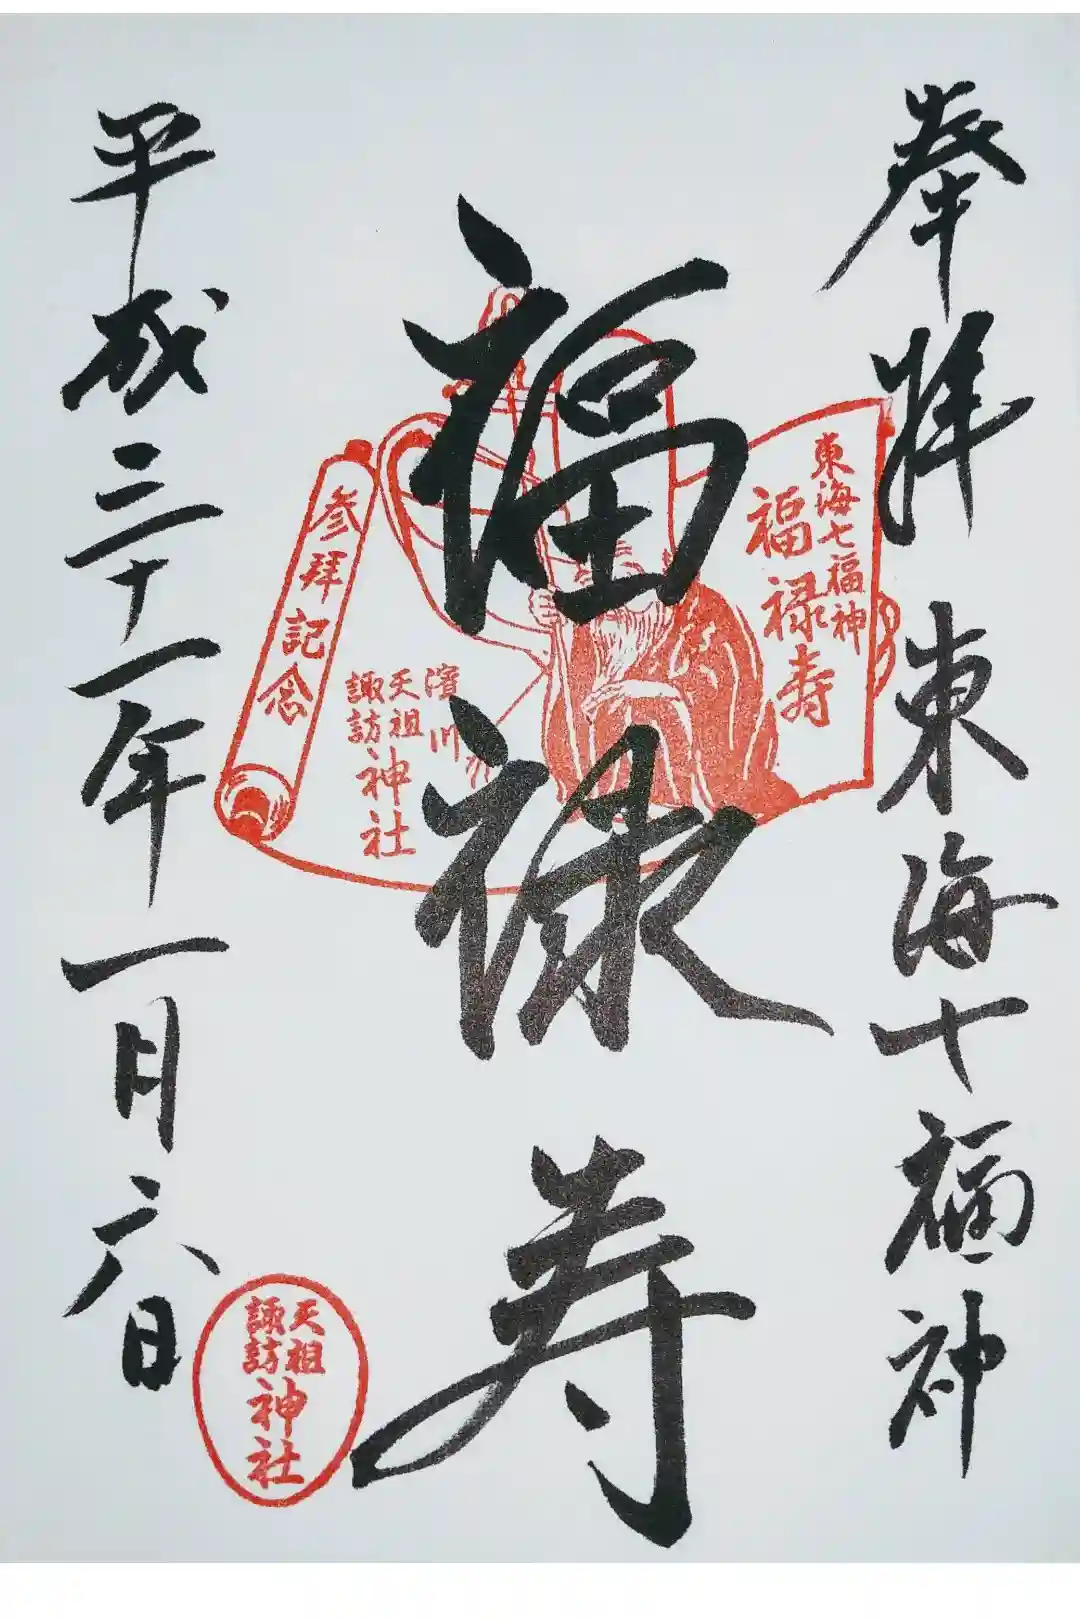 奉拝 東海七福神
福禄寿
東海七福神
福禄寿
濱川
天祖
諏訪
神社
参拝記念
平成三十一年一月六日
天祖
諏訪
神社